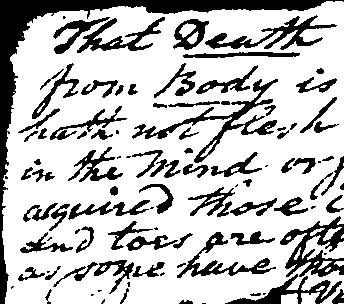 That Death
from Body is
hath not flesh
in the Mind or
acquired those
and toes are oft
as some have